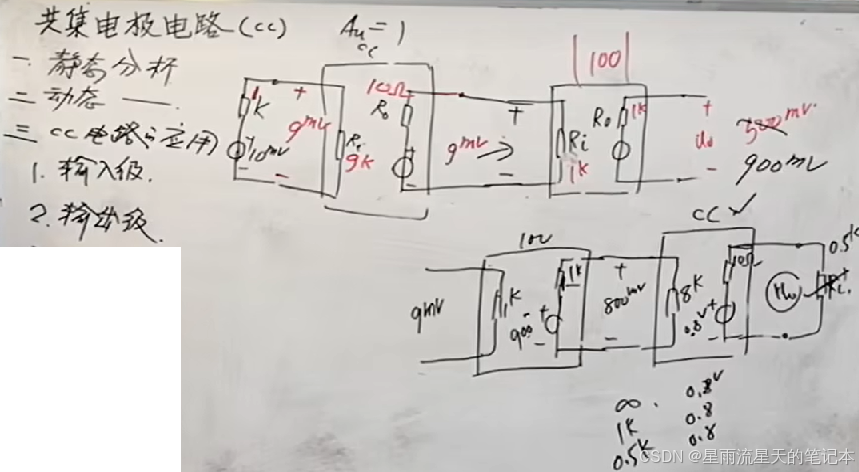 共集电极电路(cc)
Au = 1
cc
一 静态分析
二 动态 ——.
三 cc电路的应用
1. 输入级.
2. 输出级.
1K
10mV
+
-
9mV
Ri
9K
10Ω
Ro
+
-
9mV
|100|
Ri
1K
Ro
1K
+
uo
-
900mV
9mV
100
1K
900
+
-
1K
+
800mV
-
CC ✓
8K
0.8V
+
-
10Ω
0.5K
RL
∞. 0.8V
1K 0.8
0.5K 0.8
CSDN @星雨流星天的笔记本